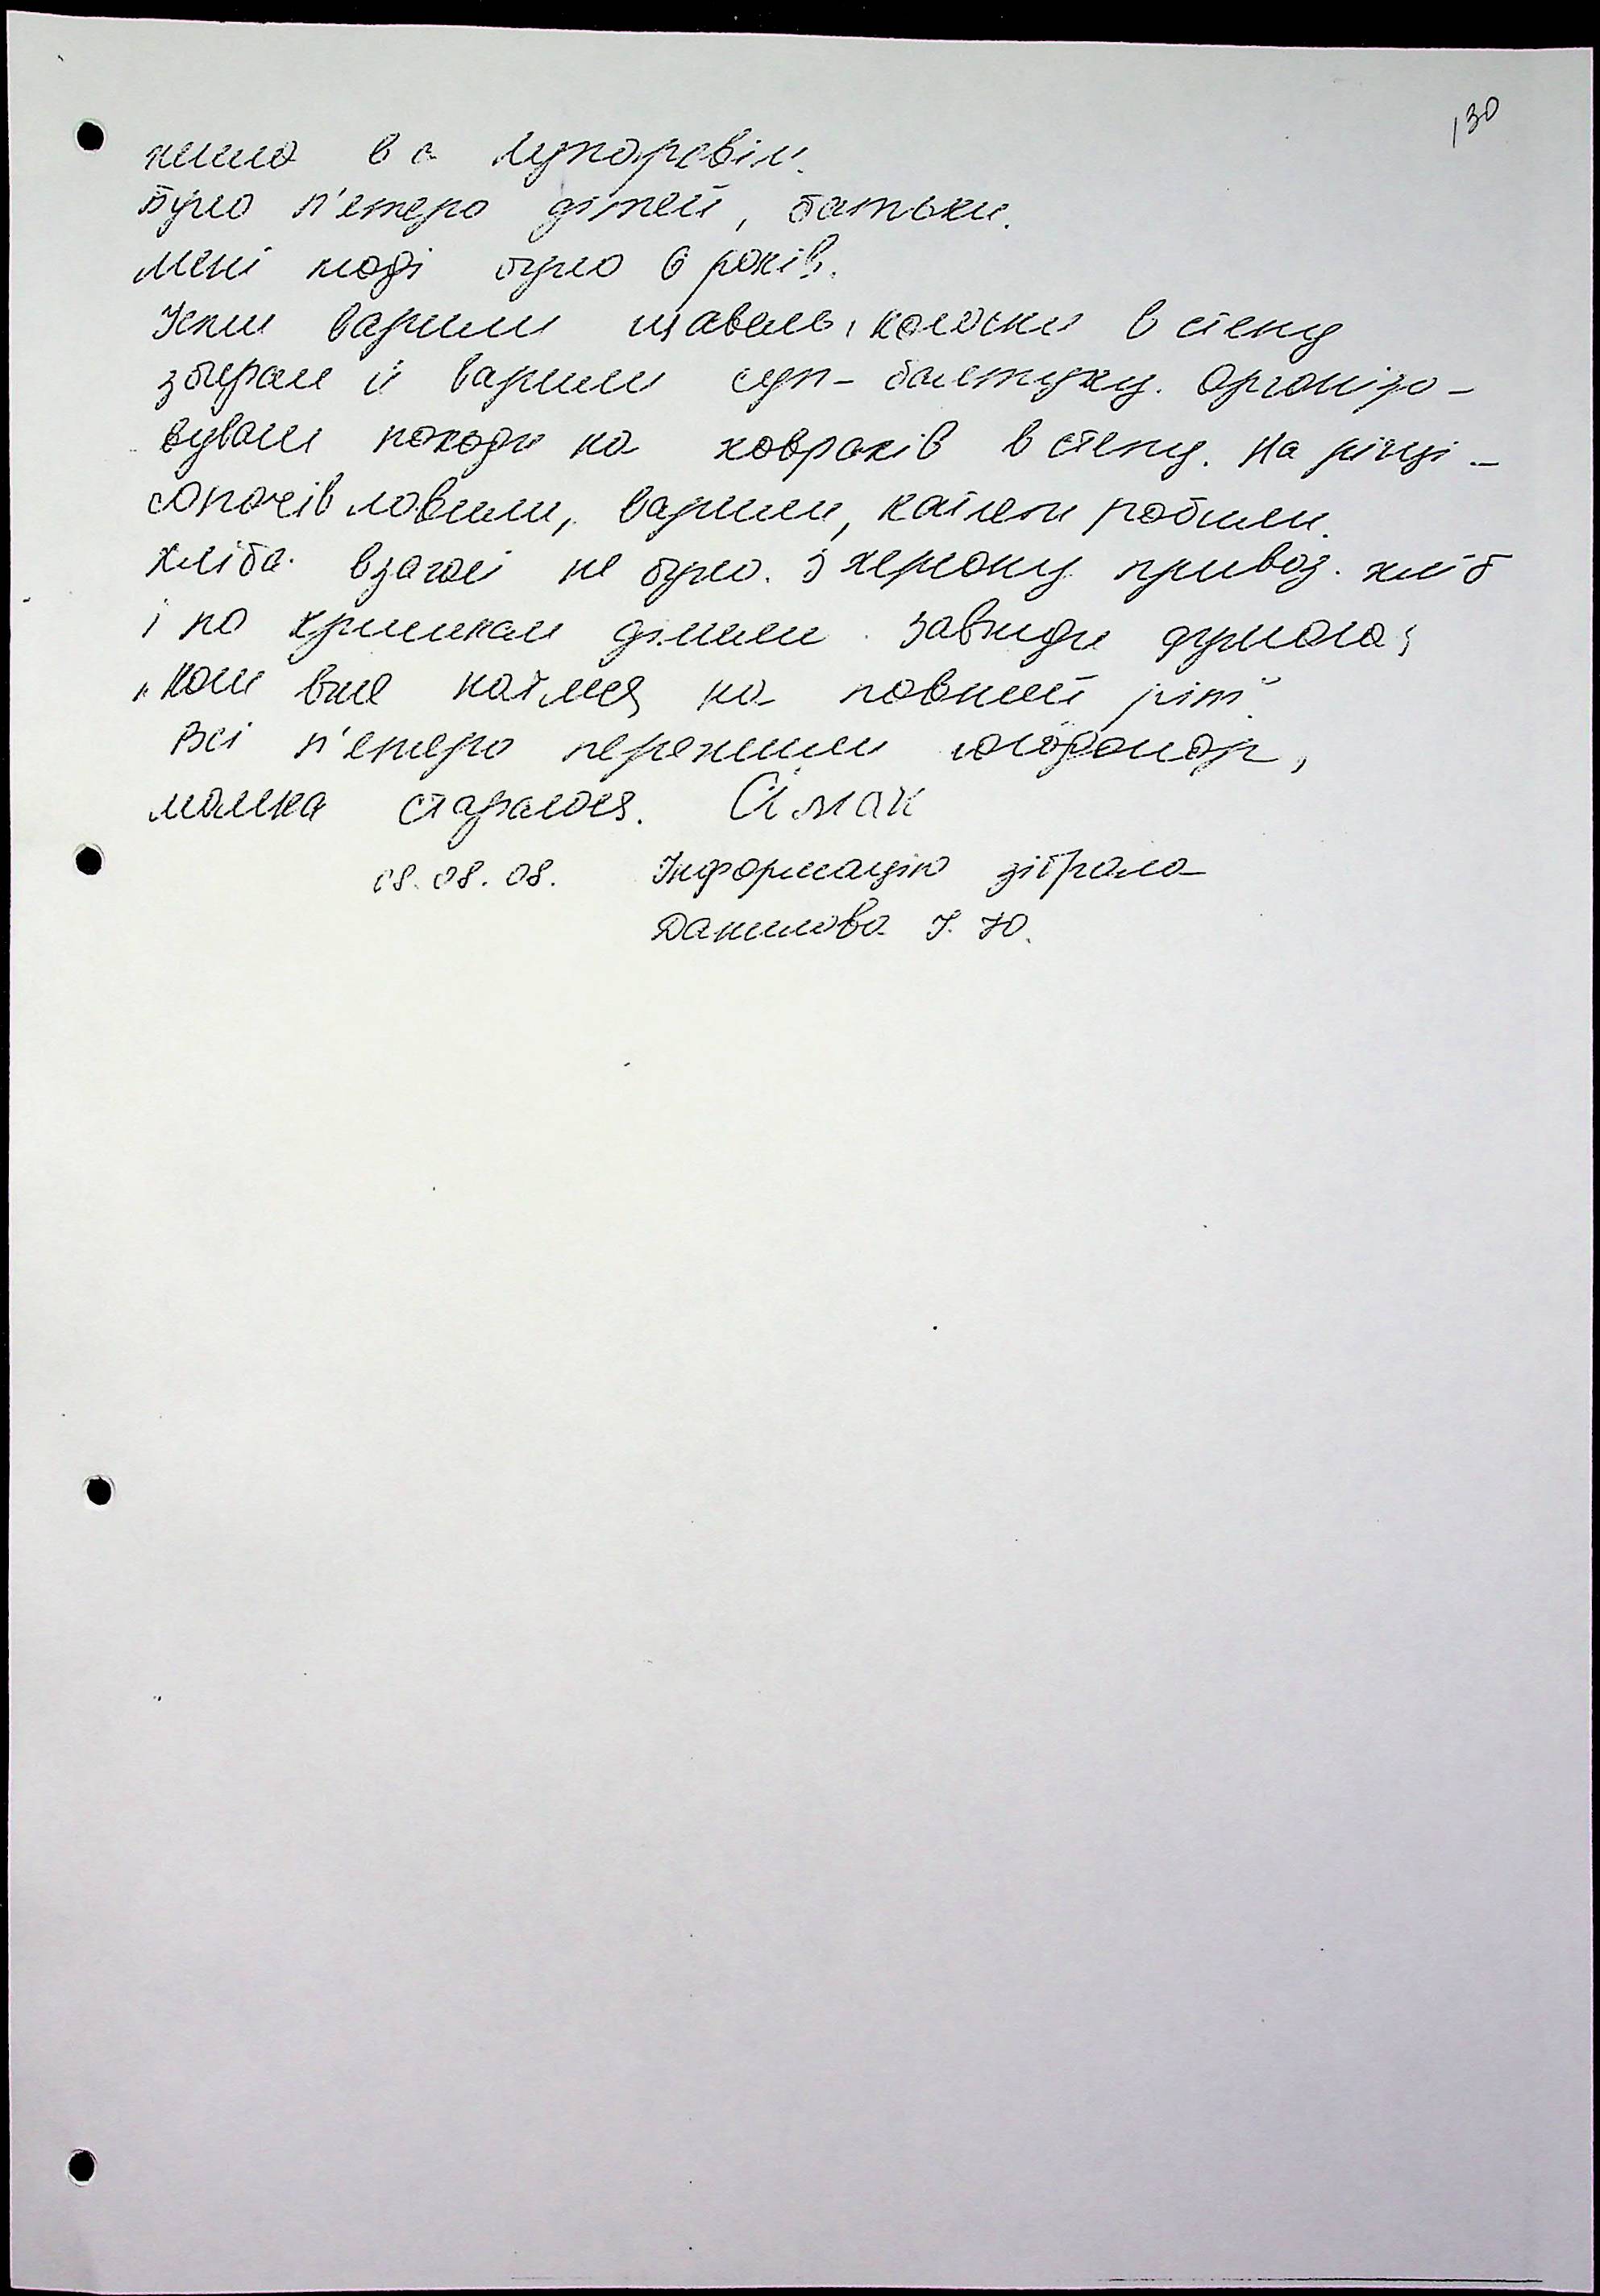 130
жила в с. Лупарєвім.
Було п'ятеро дітей, батьки.
Мені тоді було 6 років.
Їжи варили щавель, колоски в степу
збирали й варили суп-балтушку. Організо-
вували походи на ховрахів в степу. На річці -
варили, котлети робили.
Хліба взагалі не було. З Херсону привоз. хліб
і по кришкам ділили. Завжди думала:
„Коли вже наїмся на повний ріт".
Всі п'ятеро пережили голодомор,
мамка старалася.
08.08.08. Інформацію зібрала
Данилова І. Ю.